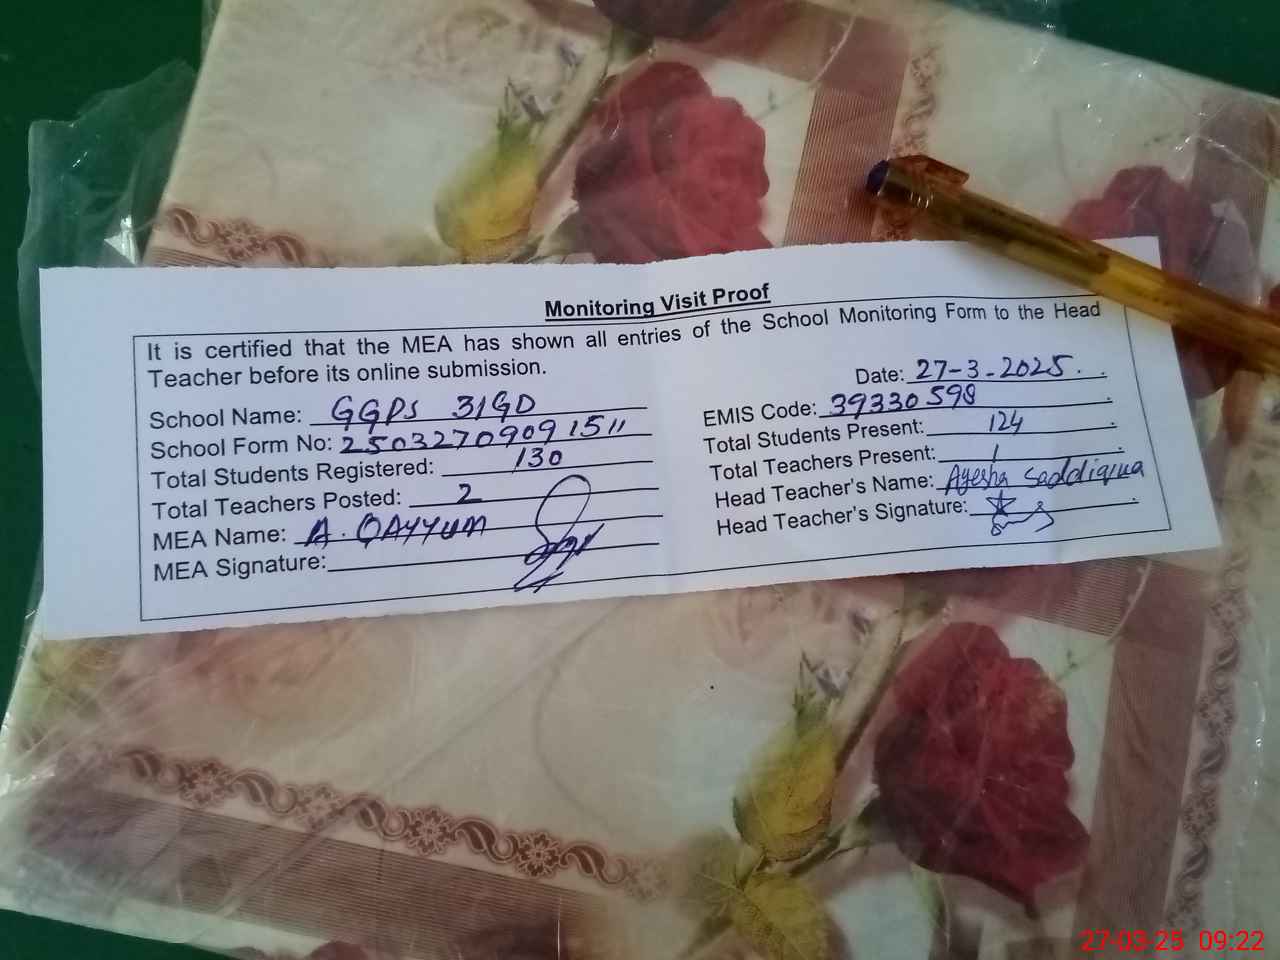 Monitoring Visit Proof
It is certified that the MEA has shown all entries of the School Monitoring Form to the Head
Teacher before its online submission.
Date: 27-3-2025.
School Name: GGPS 31GD
EMIS Code: 39330598
School Form No: 25032709091511
Total Students Present: 124
Total Students Registered: 130
Total Teachers Present: 1
Total Teachers Posted: 2
Head Teacher's Name: Ayesha Saddiqua
MEA Name: A. QAYYUM
Head Teacher's Signature:
MEA Signature:
27-03-25 09:22